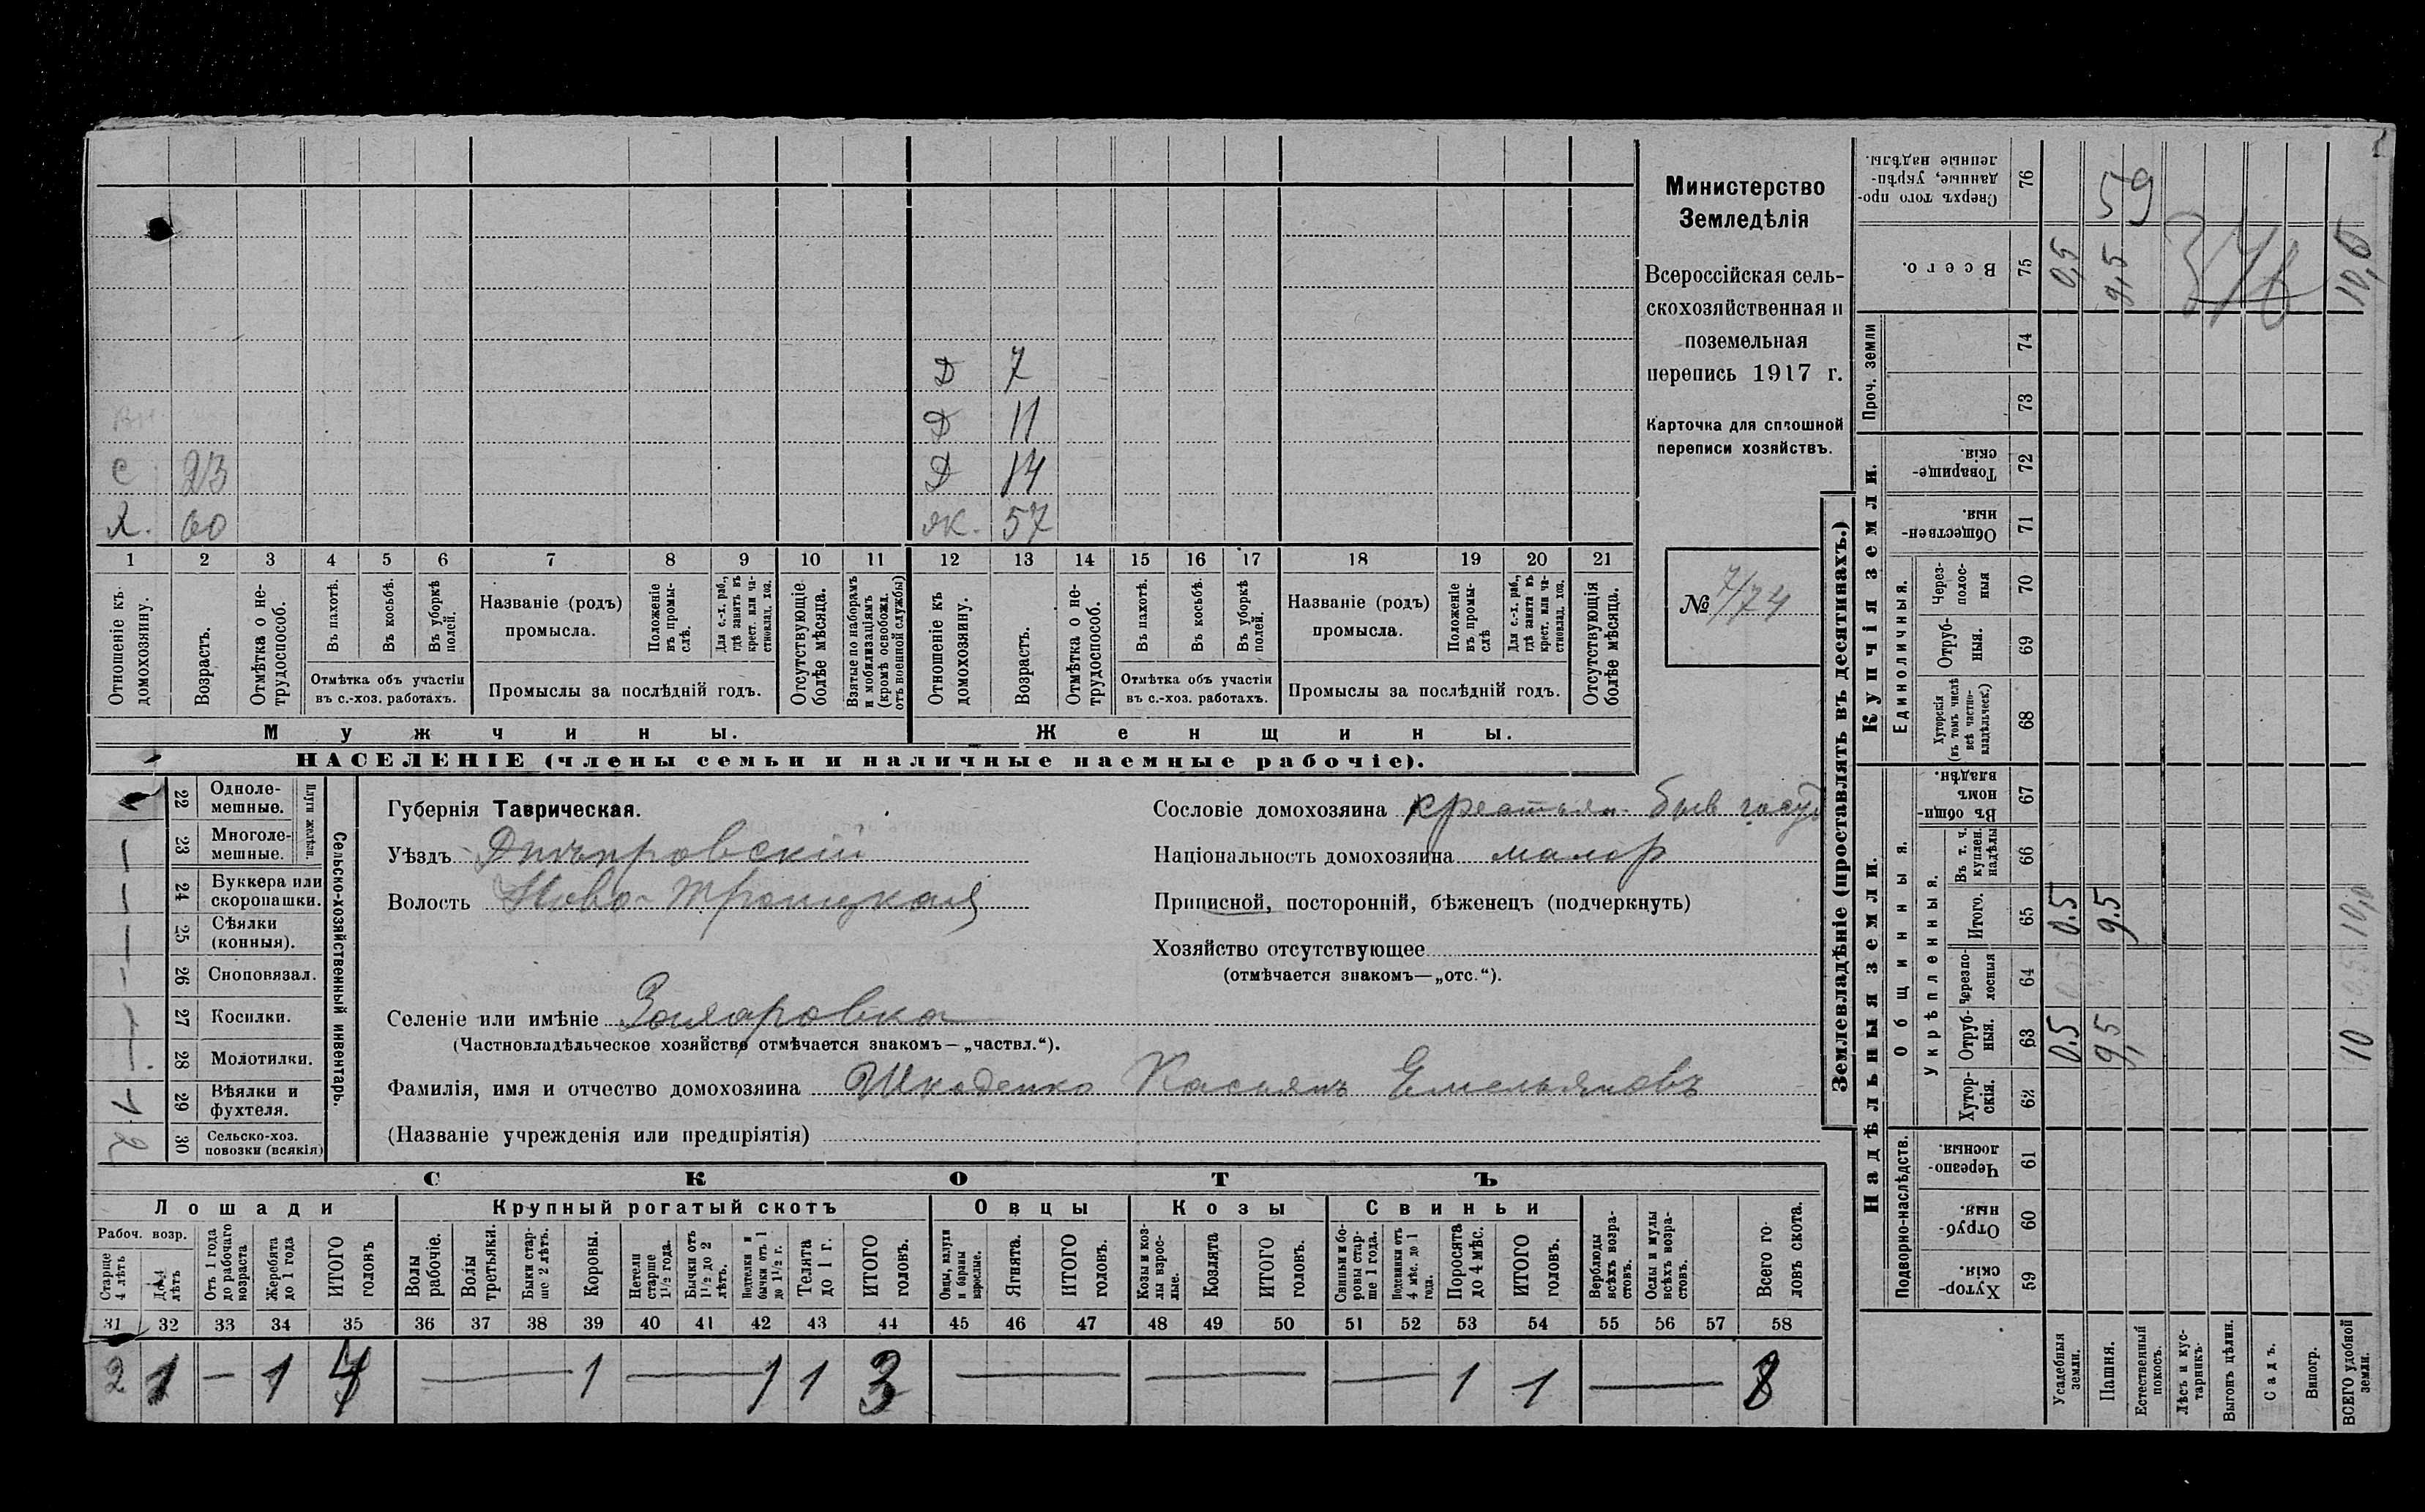 Д 7
Д 11
С 23 Д 14
Х. 60 Ж. 57
1 2 3 4 5 6 7 8 9 10 11 12 13 14 15 16 17 18 19 20 21
Отношеніе къ домохозяину.
Возрастъ.
Отмѣтка о не-трудоспособ.
Въ пахотѣ.
Въ косьбѣ.
Въ уборкѣ полей.
Отмѣтка объ участіи
въ с.-хоз. работахъ.
Названіе (родъ)
промысла.
Положеніе въ промы-слѣ.
Для с.-х. раб., гдѣ занятъ въ крест. или ча-стновлад. хоз.
Промыслы за послѣдній годъ.
Отсутствующіе болѣе мѣсяца.
Взятые по наборамъ и мобилизаціямъ (кромѣ освобожд. отъ военной службы)
Отношеніе къ домохозяину.
Возрастъ.
Отмѣтка о не-трудоспособ.
Въ пахотѣ.
Въ косьбѣ.
Въ уборкѣ полей.
Отмѣтка объ участіи
въ с.-хоз. работахъ.
Названіе (родъ)
промысла.
Положеніе въ промы-слѣ
Для с.-х. раб., гдѣ занята въ крест. или ча-стновлад. хоз.
Промыслы за послѣдній годъ.
Отсутствующія болѣе мѣсяца.
Мужчины. Женщины.
НАСЕЛЕНІЕ (члены семьи и наличные наемные рабочіе).
Министерство
Земледѣлія
Всероссійская сель-
скохозяйственная и
поземельная
перепись 1917 г.
Карточка для сплошной
переписи хозяйствъ.
№ 7/74
22 Одноле-мешные.
23 Многоле-мешные.
Плуги желѣзн.
24 Буккера или скоропашки.
25 Сѣялки (конныя).
26 Сноповязал.
27 Косилки.
28 Молотилки.
29 Вѣялки и фухтеля.
2 30 Сельско-хоз. повозки (всякія)
Сельско-хозяйственный инвентарь.
Губернія Таврическая.
Уѣздъ Днѣпровскій
Волость Ново-Троицкая
Селеніе или имѣніе
(Частновладѣльческое хозяйство отмѣчается знакомъ—„частвл.“).
Фамилія, имя и отчество домохозяина Касьянъ Емельяновъ
(Названіе учрежденія или предпріятія)
Сословіе домохозяина крестьян быв госуд
Національность домохозяина малор
Приписной, посторонній, бѣженецъ (подчеркнуть)
Хозяйство отсутствующее
(отмѣчается знакомъ—„отс.“).
СКОТЪ
Лошади Крупный рогатый скотъ Овцы Козы Свиньи
Рабоч. возр.
Старше 4 лѣтъ
До 4 лѣтъ
Отъ 1 года до рабочаго возраста
Жеребята до 1 года
ИТОГО головъ
Волы рабочіе.
Волы третьяки.
Быки стар-ше 2 лѣтъ.
Коровы.
Нетели старше 1½ года.
Бычки отъ 1½ до 2 лѣтъ.
Подтелки и бычки отъ 1 до 1½ г.
Телята до 1 г.
ИТОГО головъ.
Овцы, валухи и бараны взрослые.
Ягнята.
ИТОГО головъ.
Козы и коз-лы взрос-лые.
Козлята
ИТОГО головъ.
Свиньи и бо-ровы стар-ше 1 года.
Подсвинки отъ 4 мѣс. до 1 года.
Поросята до 4 мѣс.
ИТОГО головъ.
Верблюды всѣхъ возра-стовъ.
Ослы и мулы всѣхъ возра-стовъ.
Всего го-ловъ скота.
31 32 33 34 35 36 37 38 39 40 41 42 43 44 45 46 47 48 49 50 51 52 53 54 55 56 57 58
2 1 — 1 4 — 1 — 1 1 3 — — — 1 1 — 8
Землевладѣніе (проставлять въ десятинахъ.)
Сверхъ того про-данные, укрѣп-ленные надѣлы. 76 59
Всего. 75 0,5 9,5 10,0
376
Проч. земли 74 73
Купчія земли.
Товарище-скія. 72
Обществен-ныя. 71
Единоличныя.
Через-полос-ныя 70
Отруб-ныя. 69
Хуторскія (въ томъ числѣ всѣ частно-владѣльческ.) 68
Надѣльныя земли.
Общинныя.
Въ общи-номъ владѣн. 67
Укрѣпленныя.
Въ т. ч. куплен. надѣлы 66
Итого. 65 0.5 9.5 10,0
Черезпо-лосныя 64
Отруб-ныя. 63 0.5 9,5 10
Хутор-скія. 62
Подворно-наслѣдств.
Черезпо-лосныя. 61
Отруб-ныя. 60
Хутор-скія. 59
Усадебныя земли.
Пашня.
Естественный покосъ.
Лѣсъ и кус-тарникъ.
Выгонъ цѣлин.
Садъ.
Виногр.
ВСЕГО удобной земли.